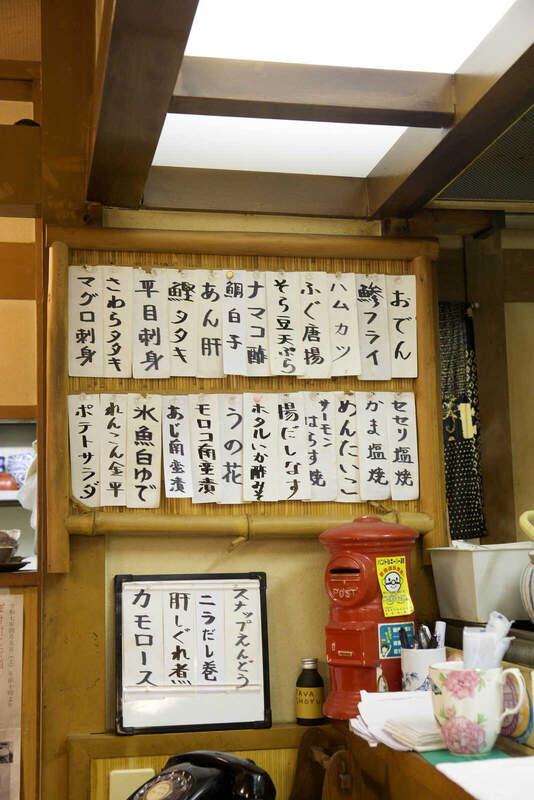 おでん
鯵フライ
ハムカツ
ふぐ唐揚
そら豆天ぷら
ナマコ酢
鯛白子
あん肝
鰹タタキ
平目刺身
さわらタタキ
マグロ刺身
セセリ塩焼
かま塩焼
めんたいこ
サーモン
はらす焼
揚だしなす
ホタルいか酢みそ
うの花
モロコ南蛮漬
あじ南蛮漬
氷魚白ゆで
れんこん金平
ポテトサラダ
スナップえんどう
ニラだし巻
肝しぐれ煮
カモロース
POST